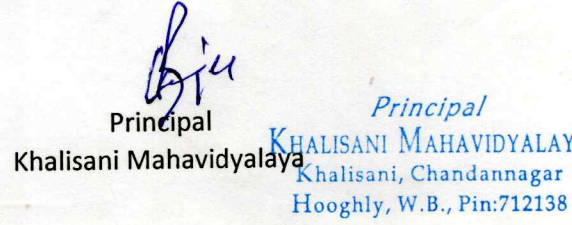 Principal
Khalisani Mahavidyalaya
Principal
KHALISANI MAHAVIDYALAY
Khalisani, Chandannagar
Hooghly, W.B., Pin:712138